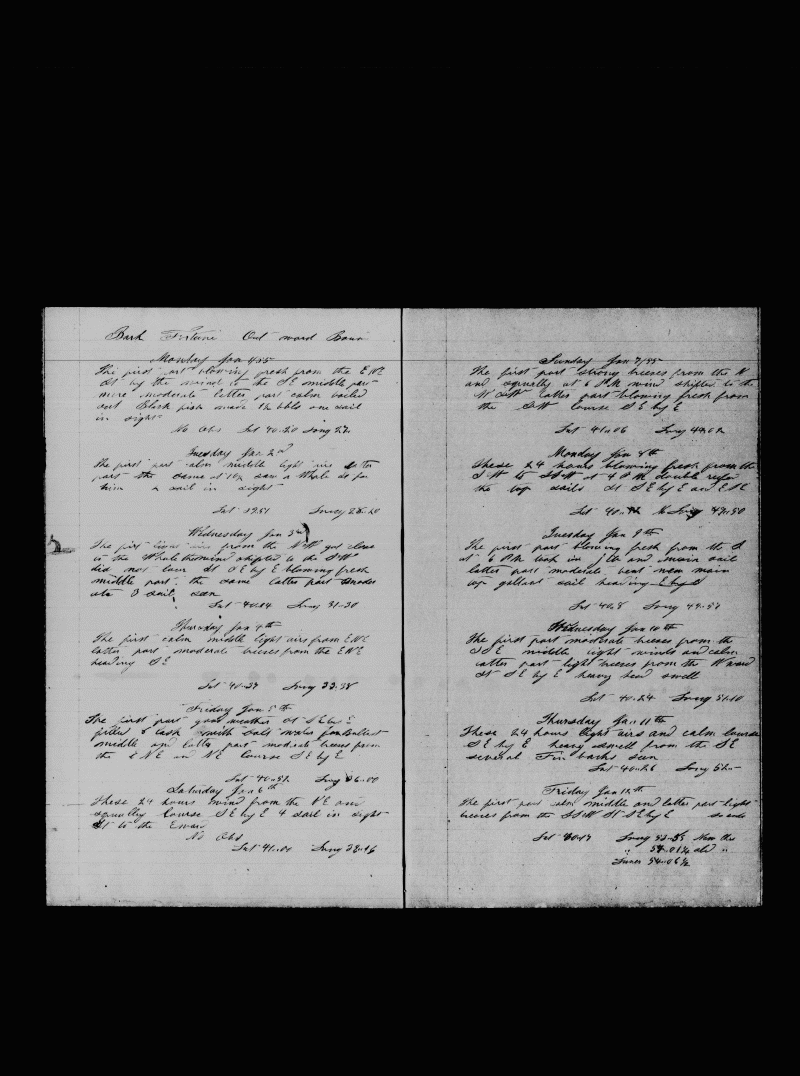 Bark Fortune Out ward Boun
Monday Jan 1/55
The first part blowing fresh from the E NE
St by the wind to the SE middle par
more moderate latter part calm boiled
out Black fish made 1½ bbls one sail
in sight
No Obs Lat 40.20 Long 27
Tuesday Jan 2nd
The first part calm middle light airs latter
part the same at 10 saw a Whale
him a sail in sight
Lat 39.51 Long 28.20
Wednesday Jan 3rd
The first light airs from the NW got close
to the Whale the wind shifted to the SW
did not lower St S E by E blowing fresh
middle part the same latter part moder
ate 3 sail seen
Lat 40.04 Long 31.30
Thursday Jan 4th
The first calm middle light airs from ENE
latter part moderate breeses from the ENE
heading SE
Lat 40.37 Long 33.38
Friday Jan 5th
The first part good weather St S E by E
filled 8 cask with salt water for Ballast
middle and latter part moderate breeses from
the E NE in NE Course S E by E
Lat 40.52 Long 36.00
Saturday Jan 6th
These 24 hours wind from the NE and
squally Course S E by E 4 sail in sight
St to the Eward
No Obs
Lat 41.01 Long 38.46
Sunday Jan 7/55
The first part strong breeses from the N
and squally at 6 P.M. wind shifted to the
W latter part blowing fresh from
the SW Course S E by E
Lat 41.06 Long 44.02
Monday Jan 8th
These 24 hours blowing fresh from the
SW to SSW at 4 P.M. double reefed
the top sails St S E by E and E SE
Lat 40. Long 47.50
Tuesday Jan 9th
The first part blowing fresh from the S
at 6 P.M. took in jib and main sail
latter part moderate bent new main
top gallant sail heading E by S
Lat 40.8 Long 49.57
Wednesday Jan 10th
The first part moderate breeses from the
SSE middle light winds and calm
latter part light breeses from the N ward
St S E by E heavy head swell
Lat 40.24 Long 51.10
Thursday Jan 11th
These 24 hours light airs and calm course
S E by E heavy swell from the SE
several Fin backs seen
Lat 40.26 Long 52
Friday Jan 12th
The first part calm middle and latter part light
breeses from the SSW St S E by E so ends
Lat 40.17 Long 53.55 New Chr
" 54.01½ old "
Lunar 54.06½